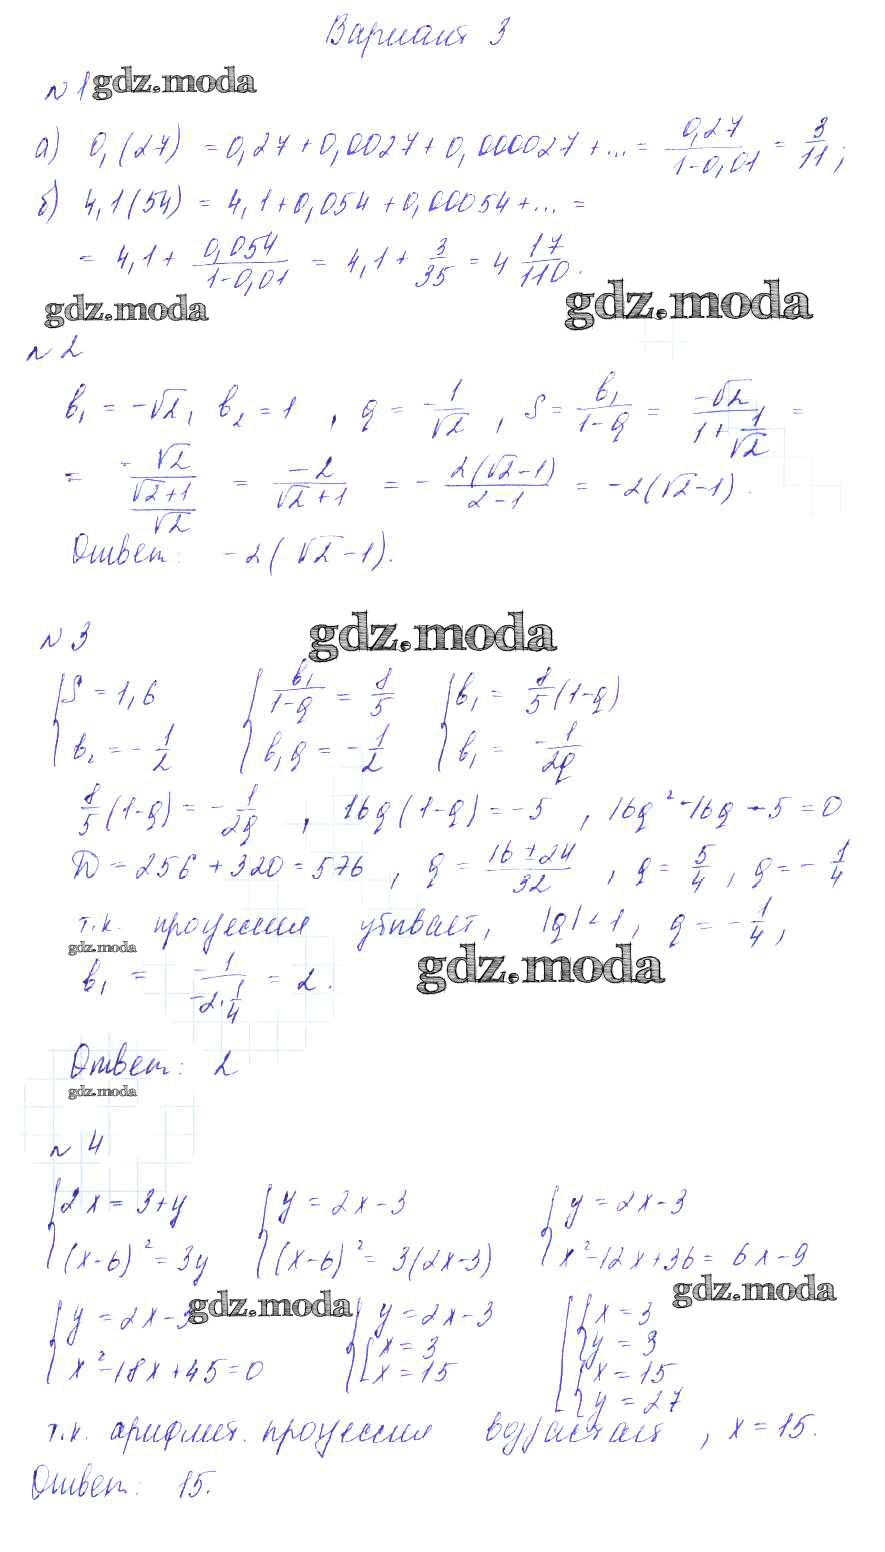 Вариант 3
№1 gdz.moda
а) 0,(27) = 0,27 + 0,0027 + 0,000027 + ... = 0,27/(1-0,01) = 3/11;
б) 4,1(54) = 4,1 + 0,054 + 0,00054 + ... =
= 4,1 + 0,054/(1-0,01) = 4,1 + 3/35 = 4 17/110.
gdz.moda gdz.moda
№2
b₁ = -√2, b₂ = 1, q = -1/√2, S = b₁/(1-q) = -√2/(1+1/√2) =
= -√2/((√2+1)/√2) = -2/(√2+1) = -2(√2-1)/(2-1) = -2(√2-1).
Ответ: -2(√2-1).
№3 gdz.moda
{S = 1,6 {b₁/(1-q) = 8/5 {b₁ = 8/5(1-q)
{b₂ = -1/2 {b₁q = -1/2 {b₁ = -1/2q
8/5(1-q) = -1/2q, 16q(1-q) = -5, 16q²-16q-5=0
D = 256+320 = 576, q = (16±24)/32, q = 5/4, q = -1/4
т.к. прогрессия убывает, |q|<1, q = -1/4,
gdz.moda gdz.moda
b₁ = -1/(-2·1/4) = 2.
Ответ: 2
gdz.moda
№4
{2x = 3+y {y = 2x-3 {y = 2x-3
{(x-6)² = 3y {(x-6)² = 3(2x-3) {x²-12x+36 = 6x-9
gdz.moda gdz.moda
{y = 2x-3 {y = 2x-3 [{x = 3
{x²-18x+45=0 {[x = 3 {y = 3
[x = 15 {x = 15
{y = 27
т.к. арифмет. прогрессия возрастает, x = 15.
Ответ: 15.